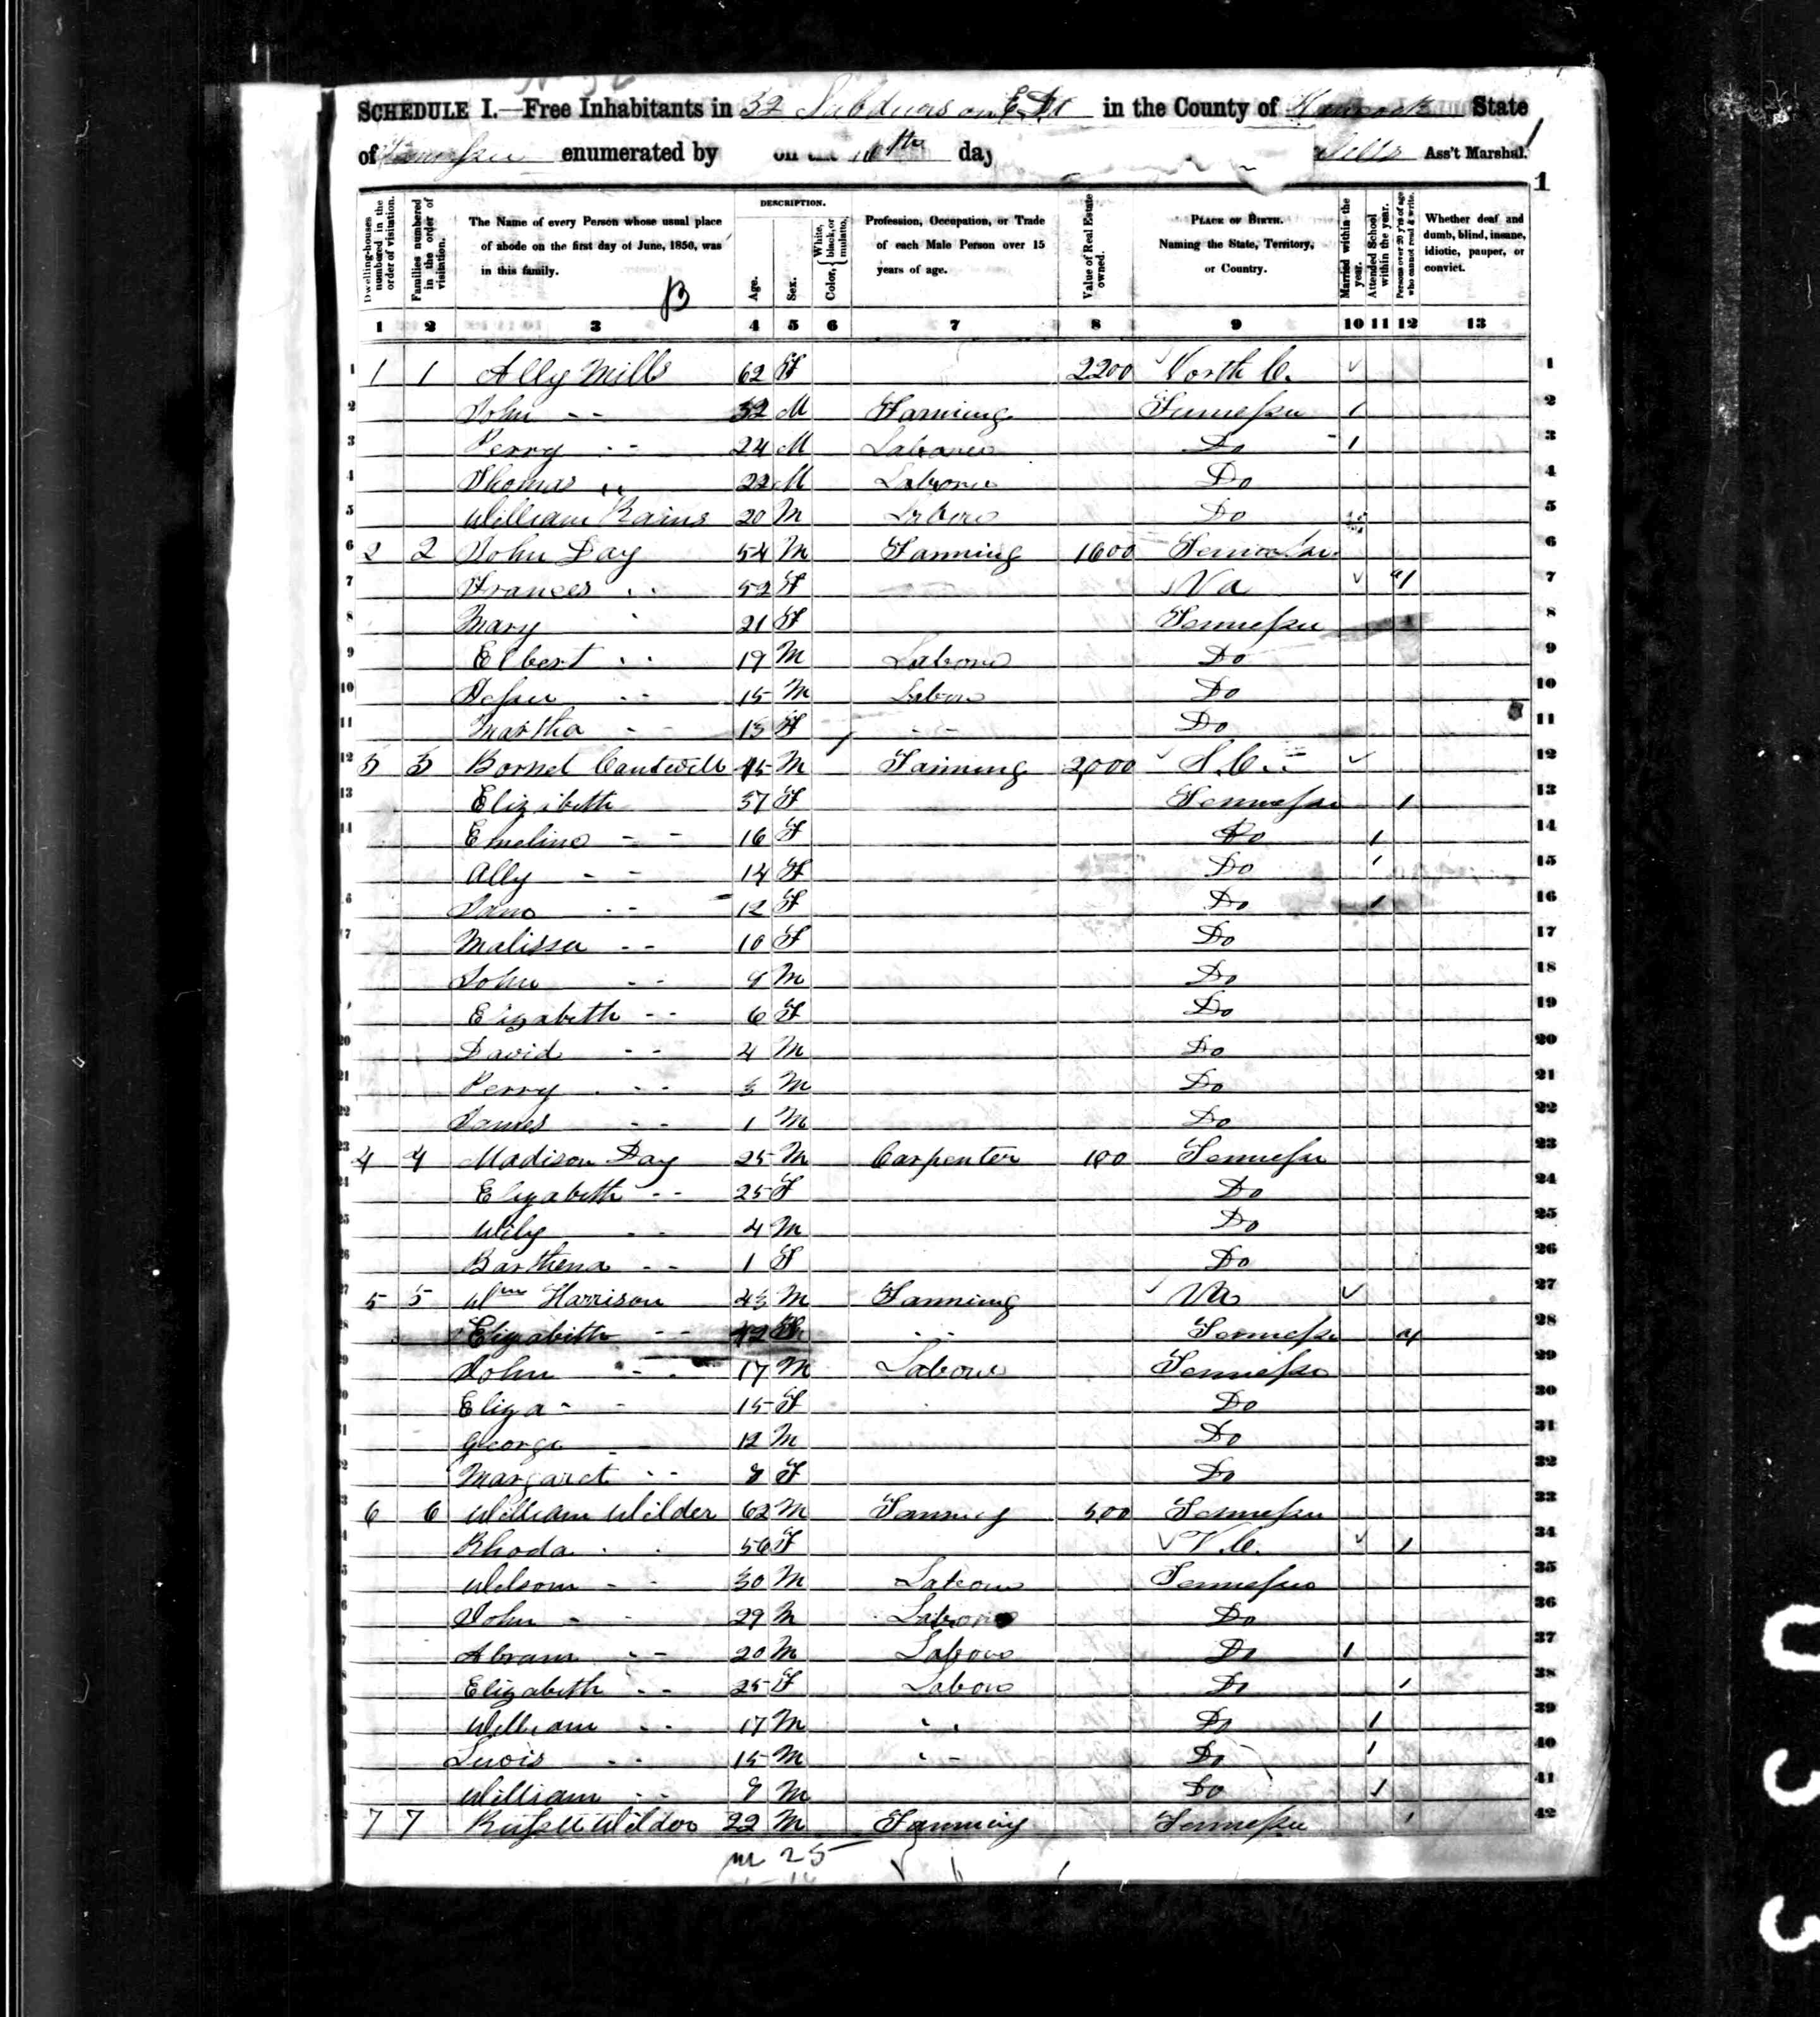 SCHEDULE I.—Free Inhabitants in 32 Subdivision E. D. in the County of Hancock State
of Tennessee enumerated by on the 10th day Ass't Marshal.
1
Dwelling-houses numbered in the order of visitation.
Families numbered in the order of visitation.
The Name of every Person whose usual place of abode on the first day of June, 1850, was in this family.
DESCRIPTION.
Age.
Sex.
Color, { White, black, or mulatto.
Profession, Occupation, or Trade of each Male Person over 15 years of age.
Value of Real Estate owned.
PLACE OF BIRTH. Naming the State, Territory, or Country.
Married within the year.
Attended School within the year.
Persons over 20 y'rs of age who cannot read & write.
Whether deaf and dumb, blind, insane, idiotic, pauper, or convict.
1 2 3 4 5 6 7 8 9 10 11 12 13
1 1 1 Ally Mills 62 F 2200 North C. 1
2 John - - 32 M Farming Tennessee 1 2
3 Perry - - 24 M Laborer Do 1 3
4 Thomas " 22 M Laborer Do 4
5 William Rains 20 M Laborer Do 5
6 2 2 John Day 54 M Farming 1600 Tennessee 6
7 Frances - - 52 F Va 1 7
8 Mary 21 F Tennessee 8
9 Elbert - - 19 M Laborer Do 9
10 Jesse - - 15 M Labor Do 10
11 Martha - 13 F - - Do 11
12 3 3 Bornel Cantwell 45 M Farming 2000 S.C. 12
13 Elizibeth 37 F Tennessee 1 13
14 Emeline - - 16 F Do 1 14
Ally - - 14 F Do 1 15
16 Jane - - 12 F Do 1 16
17 Malissa - - 10 F Do 17
John - - 9 M Do 18
Elizabeth - - 6 F Do 19
20 David - - 4 M Do 20
21 Perry - - 3 M Do 21
22 James - - 1 M Do 22
23 4 4 Madison Day 25 M Carpenter 100 Tennessee 23
24 Elizabeth - - 25 F Do 24
25 Wily - - 4 M Do 25
26 Barthena - - 1 F Do 26
27 5 5 Wm Harrison 43 M Farming Va 27
28 Elizabeth - - 42 F - - Tennessee 28
29 John - - 17 M Laborer Tennessee 29
30 Eliza - - 15 F Do 30
31 George - 12 M Do 31
32 Margaret - - 8 F Do 32
33 6 6 William Wilder 62 M Farming 500 Tennessee 33
34 Rhoda - - 56 F N.C. 1 34
35 Wilsom - - 30 M Laborer Tennessee 35
36 John - - 29 M Laborer Do 36
37 Abram - - 20 M Laborer Do 1 37
38 Elizabeth - - 25 F Labor Do 1 38
39 William - - 17 M " " Do 1 39
40 Lewis - - 15 M " - Do 1 40
41 William - - 8 M Do 1 41
42 7 7 Russell Wilder 22 M Farming Tennessee 1 42
m 25